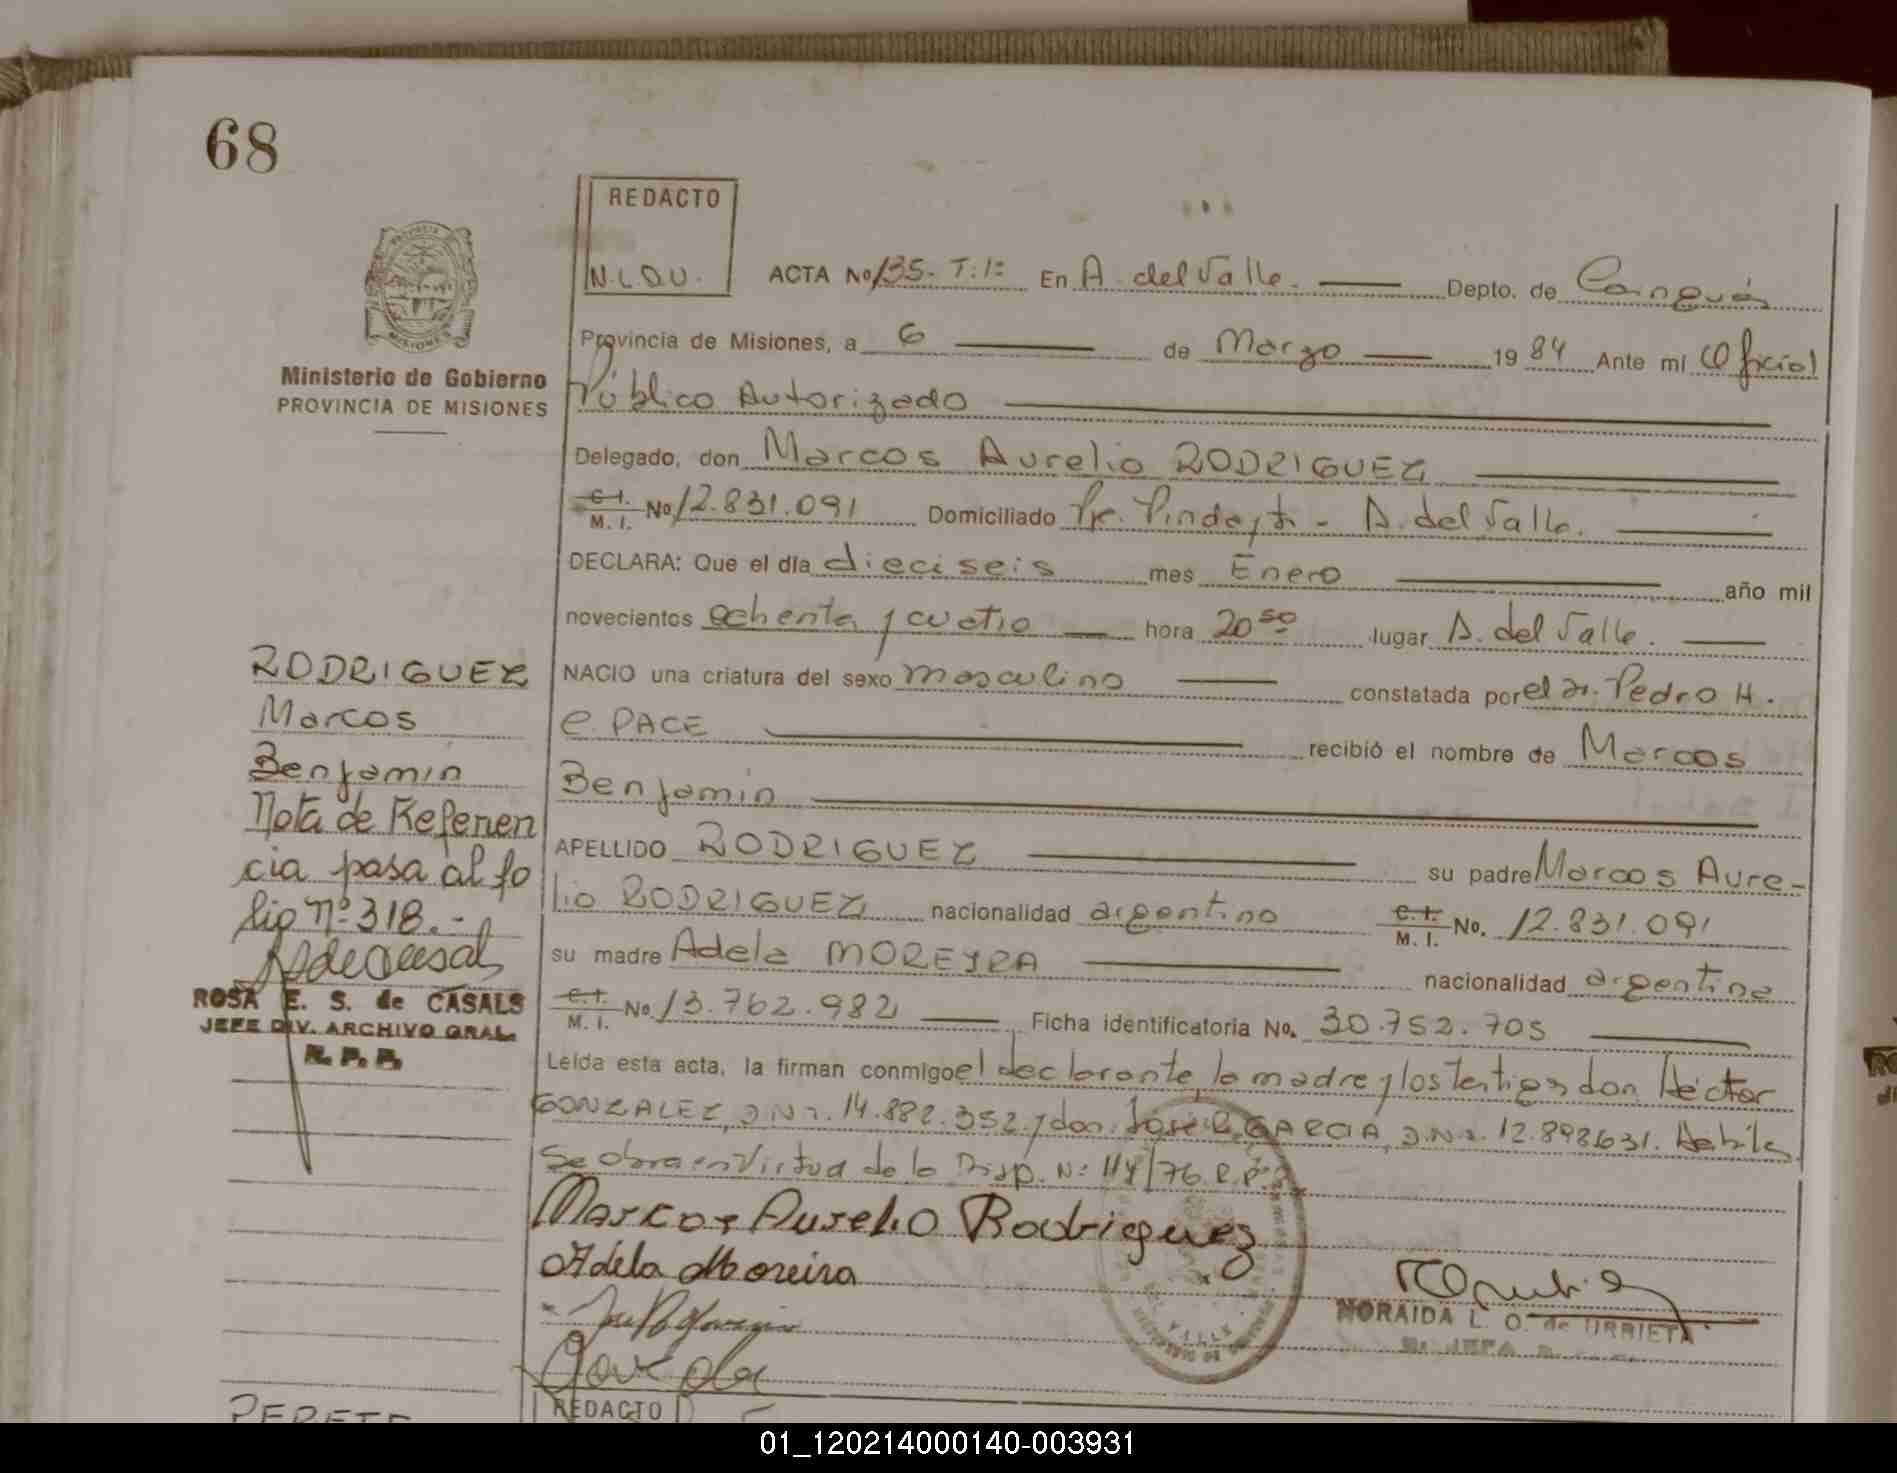 68
REDACTO
N.L.O.U.
ACTA No 135- T:1º En A. del Valle. Depto. de Cainguás
PROVINCIA DE
MISIONES
Ministerio de Gobierno
PROVINCIA DE MISIONES
Provincia de Misiones, a 6 de Marzo 1984 Ante mi Oficial
Público Autorizado
Delegado, don Marcos Aurelio RODRIGUEZ
C.I. M.I. No 12.831.091 Domiciliado Pje. Pindayti - A. del Valle.
DECLARA: Que el día dieciseis mes Enero año mil
novecientos ochenta y cuatro hora 20 50 lugar A. del Valle.
NACIO una criatura del sexo masculino constatada por el Dr. Pedro H.
C. PACE recibió el nombre de Marcos
Benjamin
APELLIDO RODRIGUEZ su padre Marcos Aure-
lio RODRIGUEZ nacionalidad argentino C.I. M.I. No. 12.831.091
su madre Adela MOREYRA nacionalidad argentina
C.I. M.I. No. 13.762.982 Ficha identificatoria No. 30.752.705
Leída esta acta, la firman conmigo el declarante, la madre y los testigos don Héctor
GONZALEZ, D.N.I. 14.882.352 y don José R. GARCIA, D.N.I. 12.898631. Habiles
Se obra en Virtud de la Disp. Nº 114/76. R.P.
Marcos Aurelio Rodriguez
Adela Moreira
RODRIGUEZ
Marcos
Benjamin
Nota de Referen
cia pasa al fo
lio Nº 318.-
ROSA E. S. de CASALS
JEFE DIV. ARCHIVO GRAL.
R. P. P.
NORAIDA L. O. de URRIETA
REDACTO
01_120214000140-003931